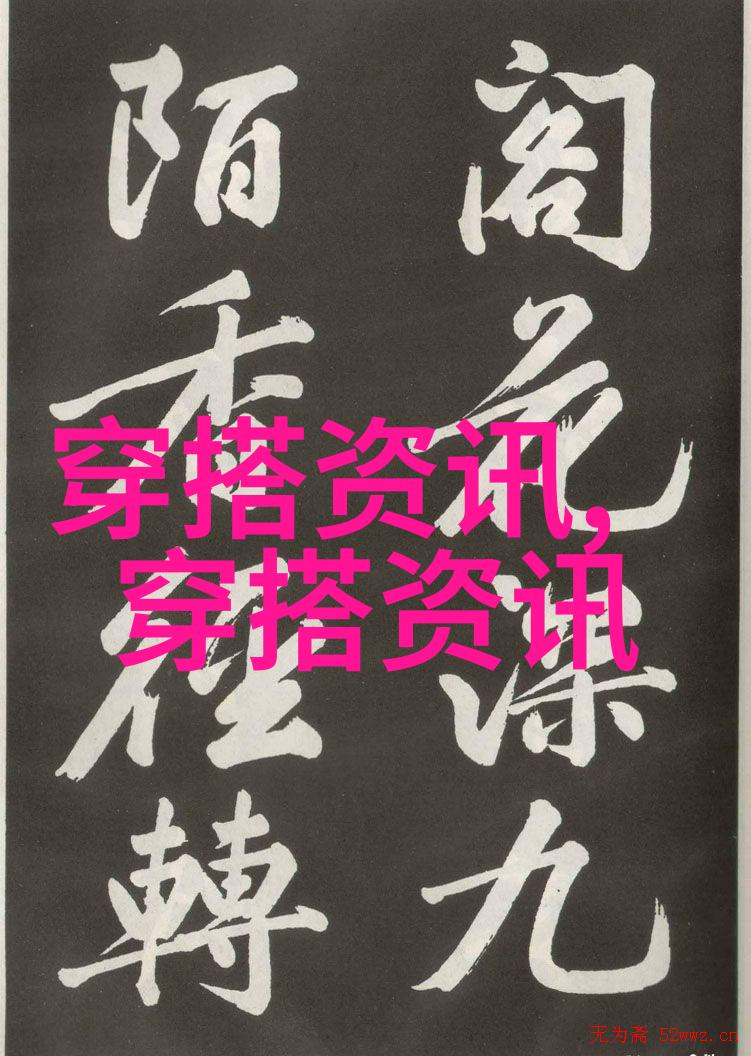 閣花深九
陌香徑轉
穿搭资讯,
穿搭资讯
无为斋 52wwz.cn